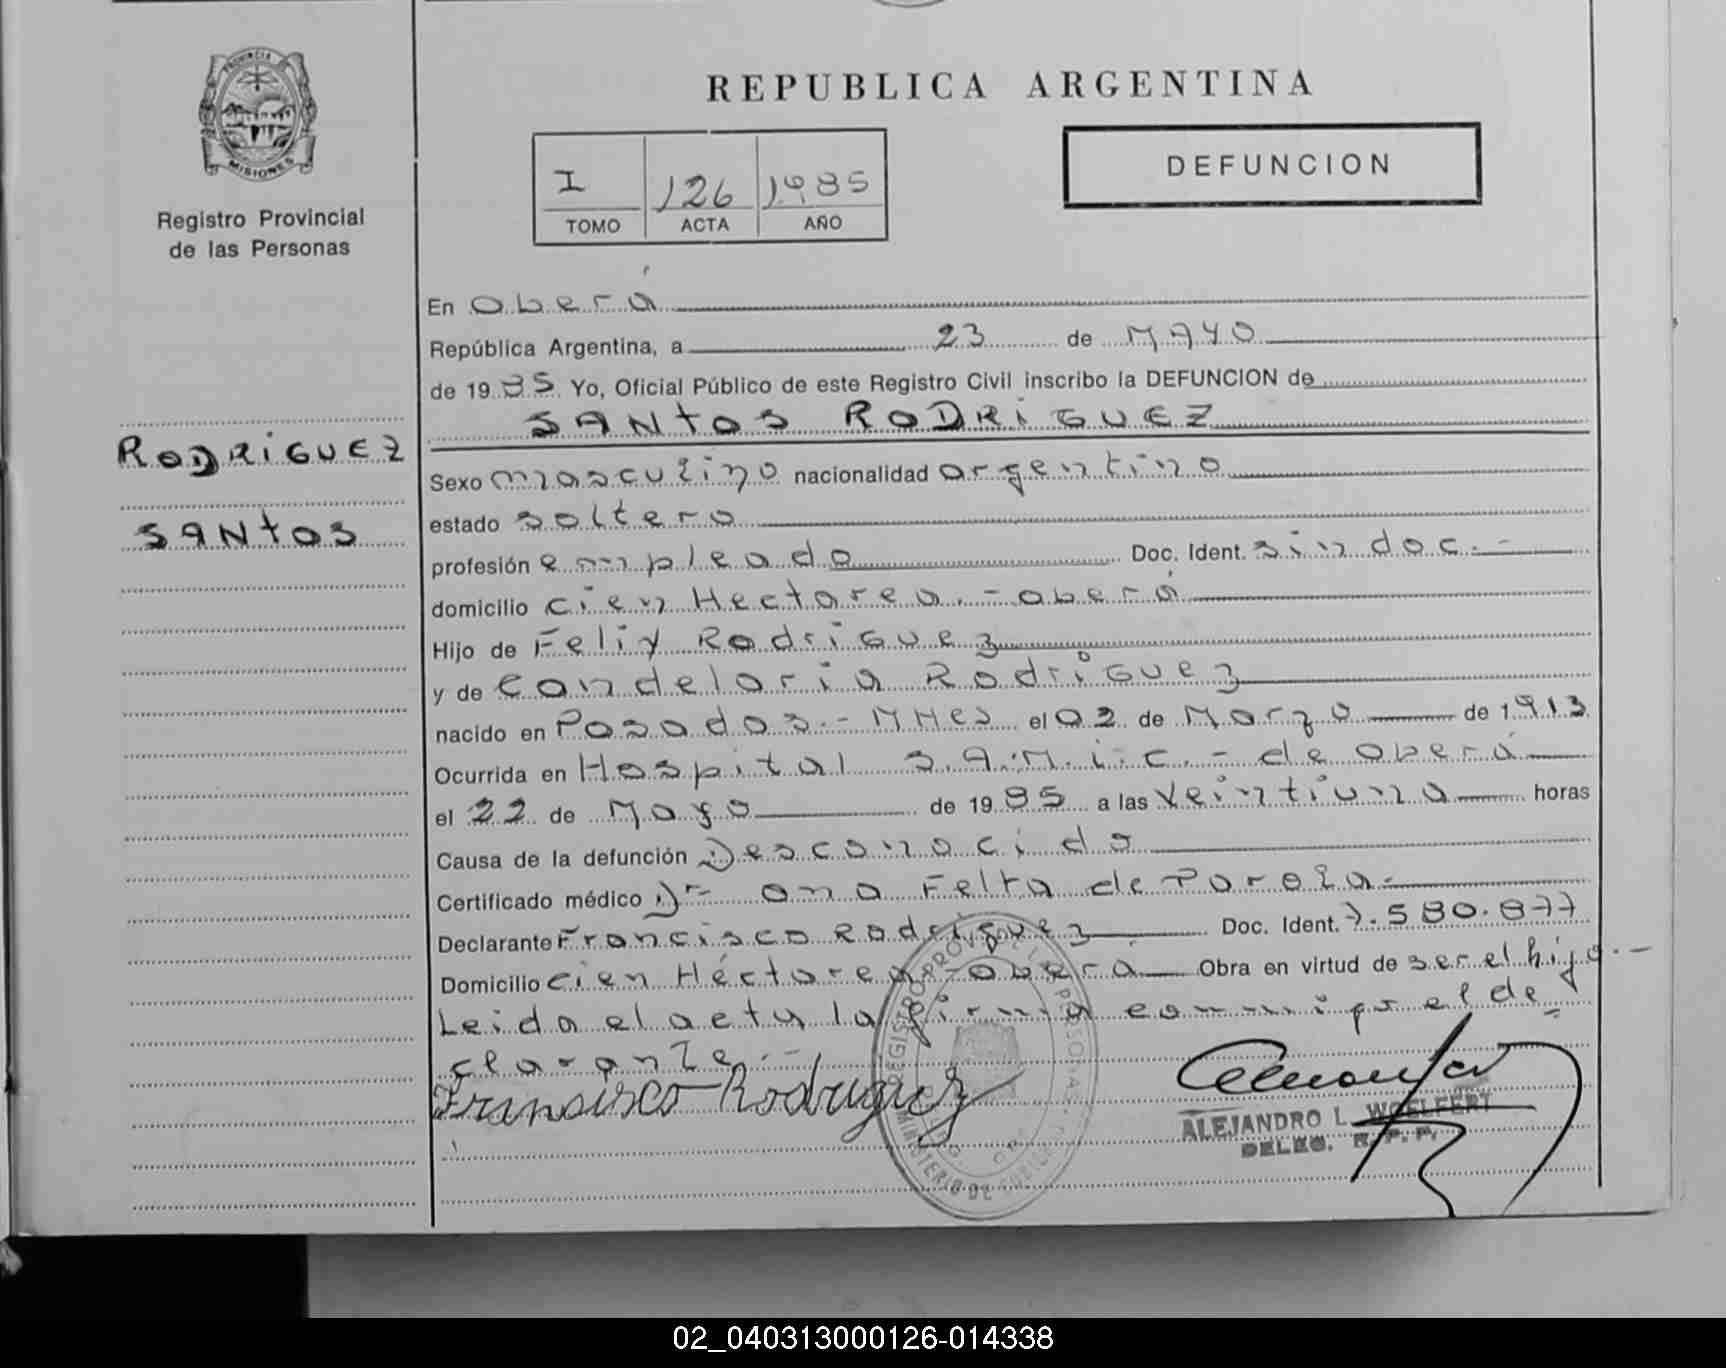 PROVINCIA DE
MISIONES
Registro Provincial
de las Personas
RODRIGUEZ
SANTOS
REPUBLICA ARGENTINA
I 126 1985
TOMO ACTA AÑO
DEFUNCION
En Oberá
República Argentina, a 23 de MAYO
de 1985 Yo, Oficial Público de este Registro Civil inscribo la DEFUNCION de
SANTOS RODRIGUEZ
Sexo masculino nacionalidad argentino
estado soltero
profesión empleado Doc. Ident. sin doc.-
domicilio cien Hectarea.- oberá
Hijo de Felix Rodriguez
y de Candelaria Rodriguez
nacido en Posadas.- MNES el 02 de Marzo de 1913
Ocurrida en Hospital S.A.M.i.C.- de oberá
el 22 de Mayo de 1985 a las Veintiuna horas
Causa de la defunción Desconocido
Certificado médico Dr- ana Felta de
Declarante Francisco Rodriguez Doc. Ident. 7.580.877
Domicilio cien Héctarea - oberá Obra en virtud de ser el hijo.-
Leida el acta la firma conmigo el de=
clarante.-
Fransisco Rodriguez
ALEJANDRO L. WOELFERT
DELEG. R.P.P.
02_040313000126-014338